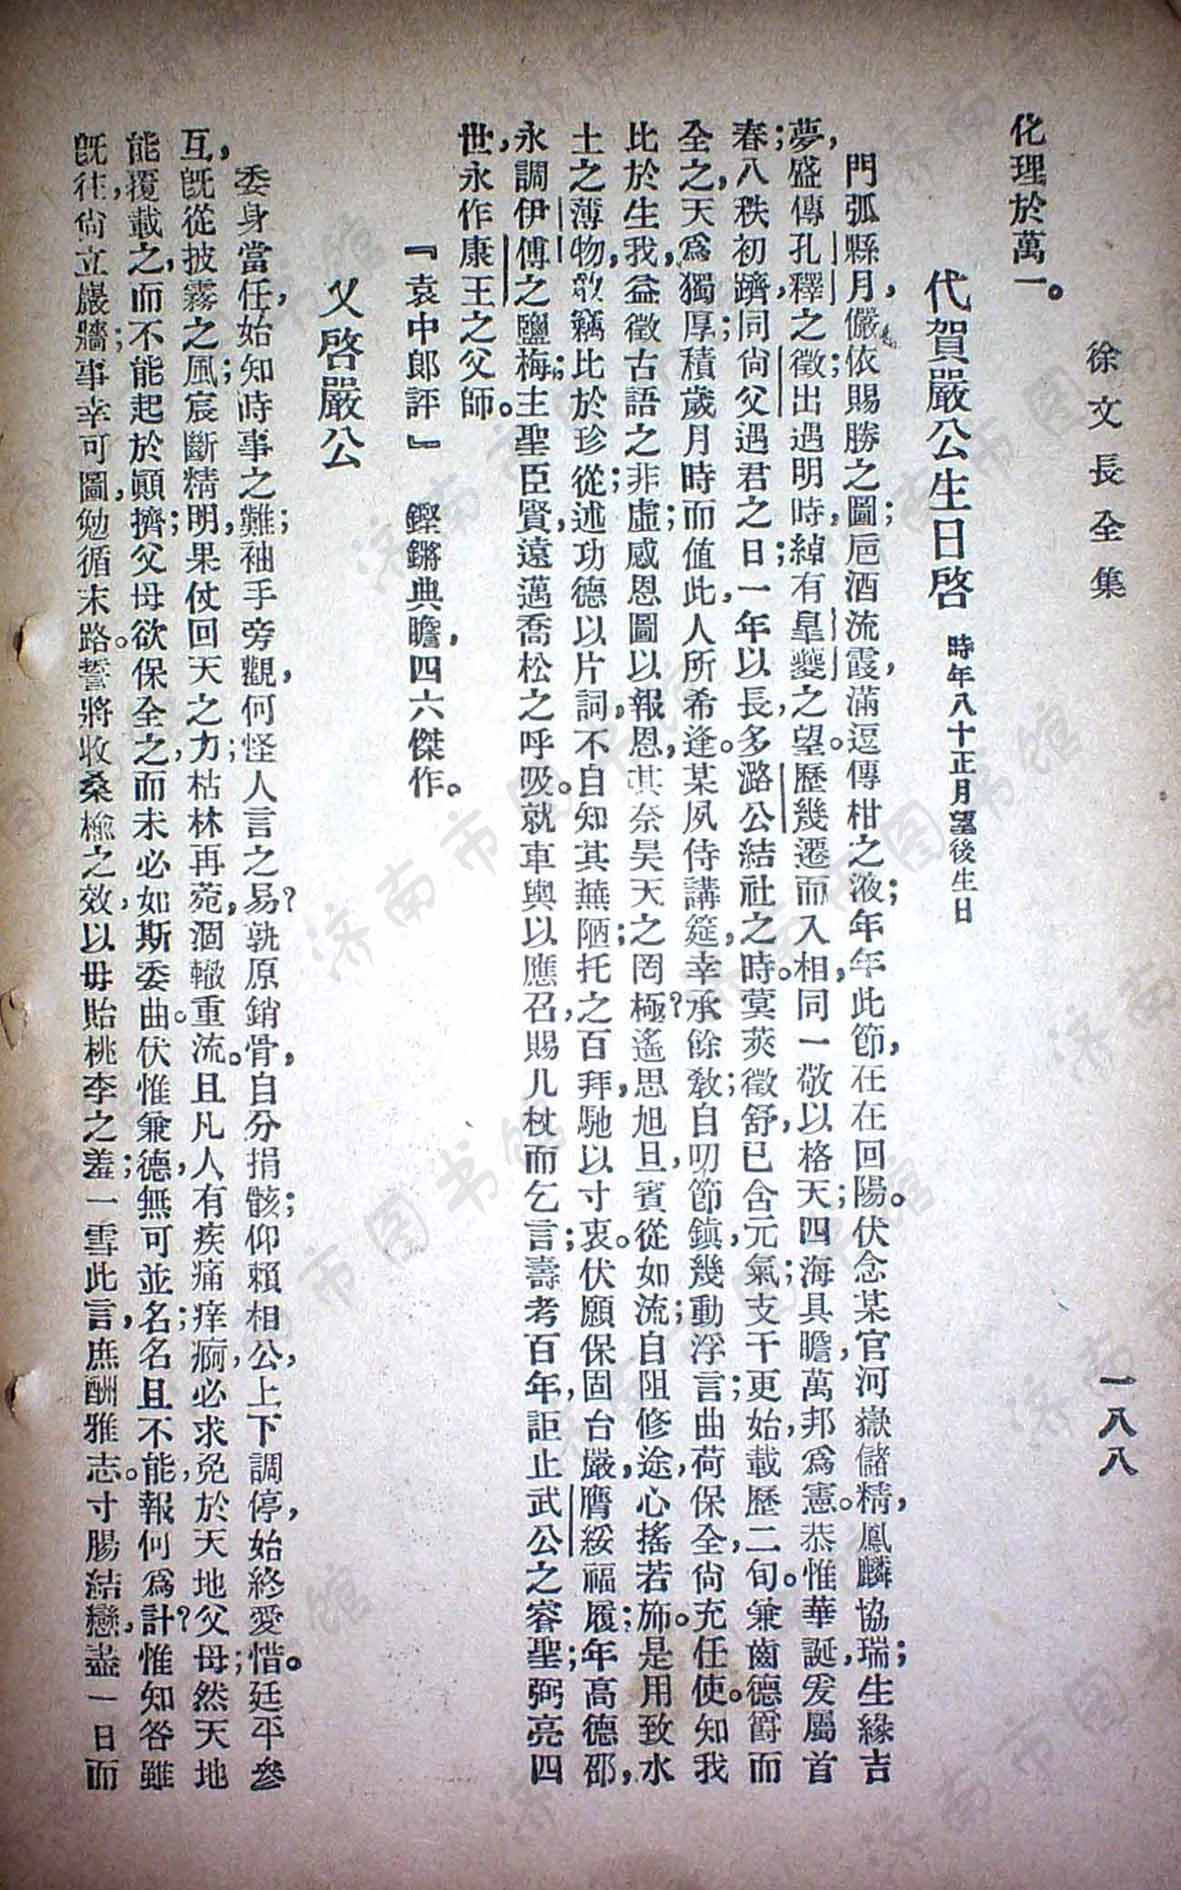 徐文長全集
一八八
化理於萬一。
代賀嚴公生日啓 時年八十正月望後生日
門弧縣月，儼依賜勝之圖；巵酒流霞，滿逗傳柑之液；年年此節，在在回陽。伏念某官河嶽儲精，鳳麟協瑞；生緣吉
夢，盛傳孔釋之徵；出遇明時，綽有皐夔之望。歷幾遷而入相，同一敬以格天；四海具瞻，萬邦爲憲。恭惟華誕，爰屬首
春；八秩初躋，同尙父遇君之日；一年以長，多潞公結社之時。蓂莢徵舒，已含元氣；支干更始，載歷二旬。兼齒德爵而
全之，天爲獨厚；積歲月時而値此，人所希逢。某夙侍講筵，幸承餘敎；自叨節鎮，幾動浮言；曲荷保全，尙充任使。知我
比於生我，益徵古語之非虛；感恩圖以報恩，其奈昊天之罔極？遙思旭旦，賓從如流；自阻修途，心搖若斾。是用致水
土之薄物，敢竊比於珍從；述功德以片詞，不自知其蕪陋；托之百拜，馳以寸衷。伏願保固台嚴，膺綏福履；年高德邵，
永調伊傅之鹽梅；主聖臣賢，遠邁喬松之呼吸。就車輿以應召，賜几杖而乞言；壽考百年，詎止武公之睿聖；弼亮四
世，永作康王之父師。
『袁中郎評』　鏗鏘典瞻，四六傑作。
又啓嚴公
委身當任，始知時事之難；袖手旁觀，何怪人言之易？孰原銷骨，自分捐骸；仰賴相公，上下調停，始終愛惜。廷平參
互，旣從披霧之風；宸斷精明，果仗回天之力；枯林再菀，涸轍重流。且凡人有疾痛痒痾，必求免於天地父母；然天地
能覆載之，而不能起於顚擠；父母欲保全之，而未必如斯委曲。伏惟兼德，無可並名；名且不能，報何爲計？惟知咎雖
旣往，尙立巖牆；事幸可圖，勉循末路。誓將收桑楡之效，以毋貽桃李之羞；一雪此言，庶酬雅志。寸腸結戀，盡一日而